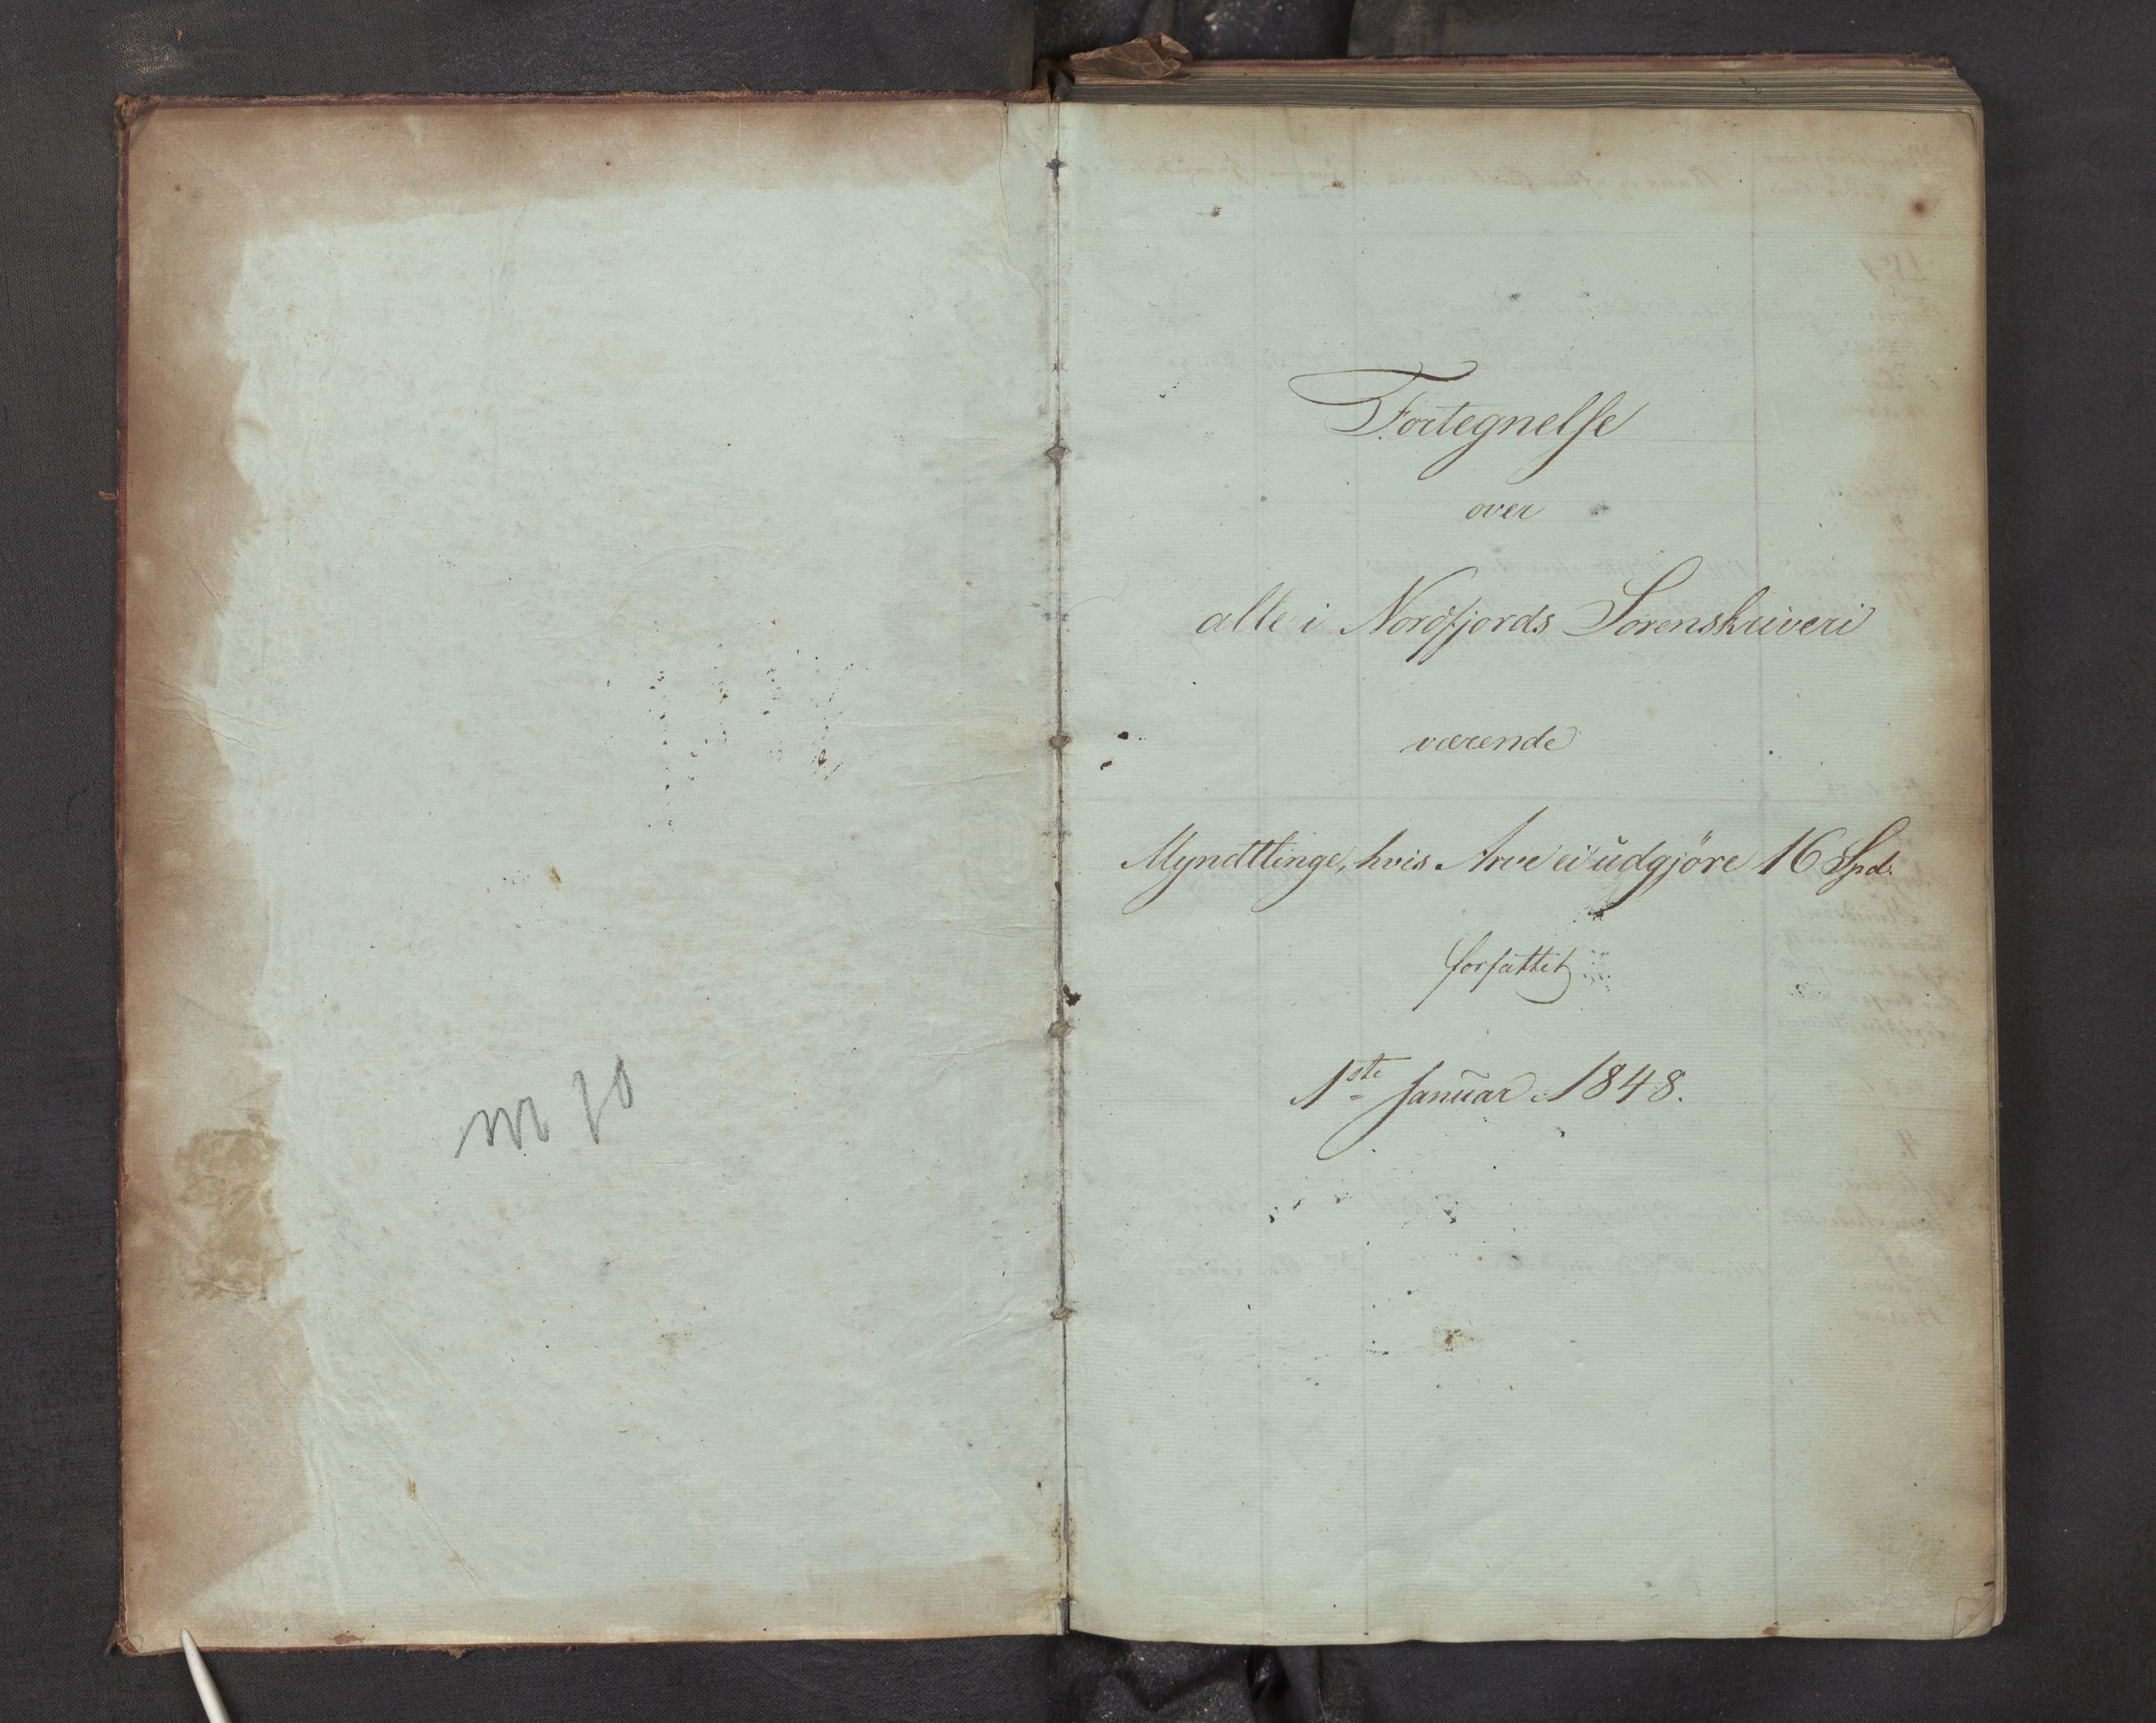 nr 10
Fortegnelse
over
alle i Nordfjords Sorenskriveri
værende
Myndtlinge, hvis Arve ei udgjöre 16 Spd.
forfattet
1ste Januar 1848.